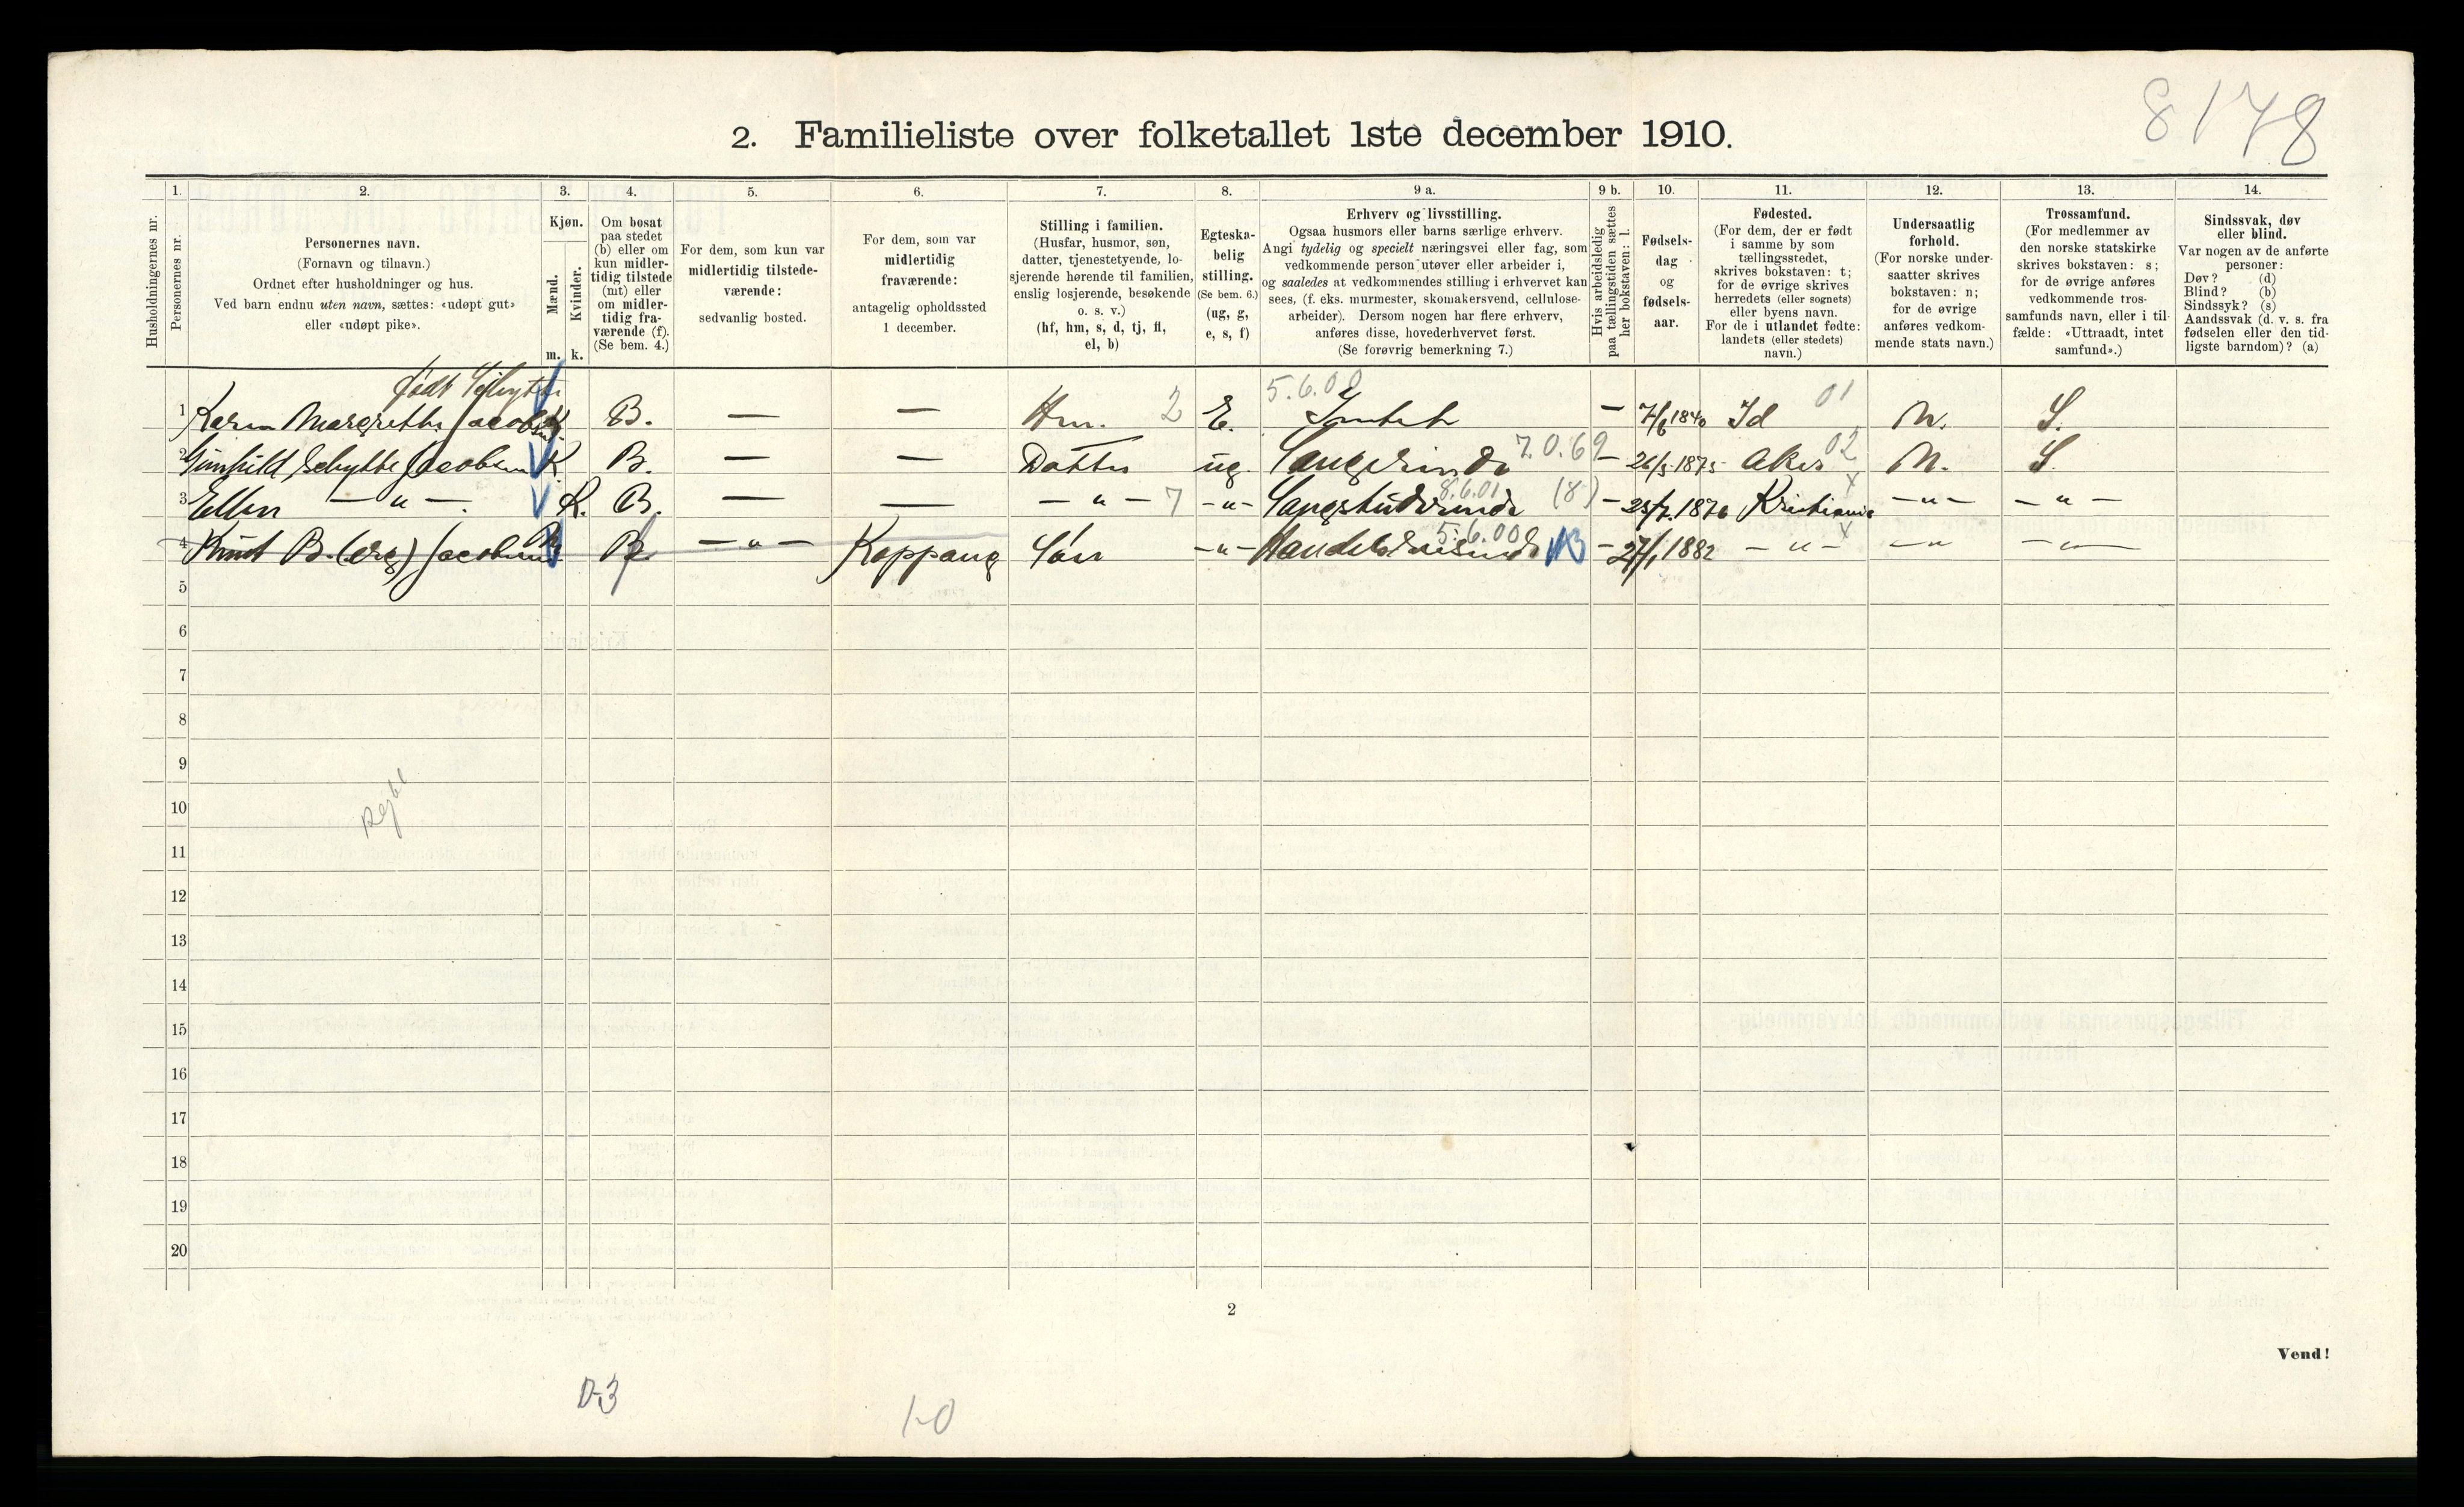 8178
2. Familieliste over folketallet 1ste december 1910.
1. 2. 3. 4. 5. 6. 7. 8. 9 a. 9 b. 10. 11. 12. 13. 14.
Husholdningernes nr.
Personernes nr.
Personernes navn.
(Fornavn og tilnavn.)
Ordnet efter husholdninger og hus.
Ved barn endnu uten navn, sættes: «udøpt gut»
eller «udøpt pike».
Kjøn.
Mænd.
Kvinder.
m. k.
Om bosat
paa stedet
(b) eller om
kun midler-
tidig tilstede
(mt) eller
om midler-
tidig fra-
værende (f).
(Se bem. 4.)
For dem, som kun var
midlertidig tilstede-
værende:
sedvanlig bosted.
For dem, som var
midlertidig
fraværende:
antagelig opholdssted
1 december.
Stilling i familien.
(Husfar, husmor, søn,
datter, tjenestetyende, lo-
sjerende hørende til familien,
enslig losjerende, besøkende
o. s. v.)
(hf, hm, s, d, tj, fl,
el, b)
Egteska-
belig
stilling.
(Se bem. 6.)
(ug, g,
e, s, f)
Erhverv og livsstilling.
Ogsaa husmors eller barns særlige erhverv.
Angi tydelig og specielt næringsvei eller fag, som
vedkommende person utøver eller arbeider i,
og saaledes at vedkommendes stilling i erhvervet kan
sees, (f. eks. murmester, skomakersvend, cellulose-
arbeider). Dersom nogen har flere erhverv,
anføres disse, hovederhvervet først.
(Se forøvrig bemerkning 7.)
Hvis arbeidsledig
paa tællingstiden sættes
her bokstaven: l.
Fødsels-
dag
og
fødsels-
aar.
Fødested.
(For dem, der er født
i samme by som
tællingsstedet,
skrives bokstaven: t;
for de øvrige skrives
herredets (eller sognets)
eller byens navn.
For de i utlandet fødte:
landets (eller stedets)
navn.)
Undersaatlig
forhold.
(For norske under-
saatter skrives
bokstaven: n;
for de øvrige
anføres vedkom-
mende stats navn.)
Trossamfund.
(For medlemmer av
den norske statskirke
skrives bokstaven: s;
for de øvrige anføres
vedkommende tros-
samfunds navn, eller i til-
fælde: «Uttraadt, intet
samfund».)
Sindssvak, døv
eller blind.
Var nogen av de anførte
personer:
Døv? (d)
Blind? (b)
Sindssyk? (s)
Aandssvak (d. v. s. fra
fødselen eller den tid-
ligste barndom)? (a)
født 5.6.00 01
1 Karen Margrethe Jacobsen K. B. — — Hm. 2 E. — 7/6 1840 Id N. S.
7.0.69 02
2 Gunhild Schytte Jacobsen K. B. — — Datter ug. Sangerinde — 26/5 1875 Aker N. S.
8.6.01 (8) x
3 Ellen — " — K. B. — — — " — 7 — " — Sangstuderende — 1876 Kristiania — " — — " —
5.6.00 x
4 Knut B. (erg) Jacobsen f — " — Koppang Søn — " — Handelsreisende — 27/1 1882 — " — — " — — " —
5
6
7
8
9
10
11
12
13
14
15
16
17
18
19
20
2
Vend!
0-3
1-0